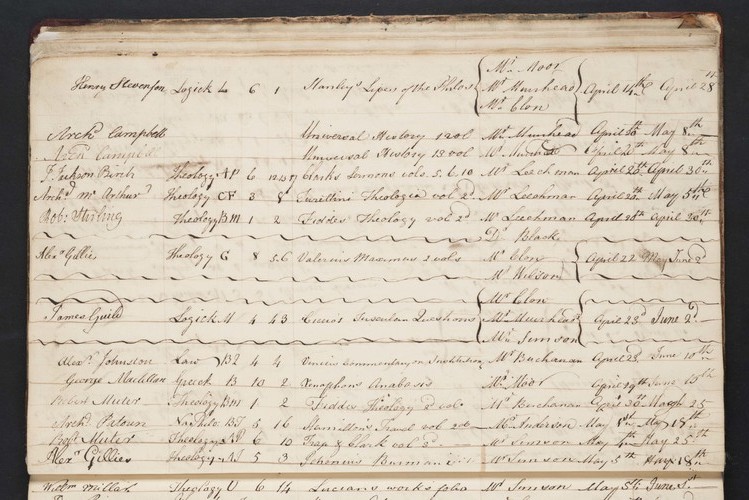 Mr. Moor
Henry Stevenson Logick 4 6 1 Stanley's Lives of the Philos Mr Muirhead April 14th April 28
Mr Clon
Archd Campbell Universal History 1 vol Mr Muirhead April 20th May 8th
Archd Campbell Universal History 13 vol Mr Muirhead April May 8th
Jackson Birch Theology 6 Clarks Sermons vols. 5, 6, 10 Mr Leechman April 20th April 30th
Archd Mc Arthur Theology CF 3 8 Turettini Theologia vol 2d Mr Leechman April 20th May 5th
Robt Stirling Theology BM 1 2 Fiddes Theology vol 2d Mr Leechman April 20th April 30th
Dr Black
Alexr Gillies Theology G 8 5.6 Valerius Maximus 2 vols Mr Clon April 22 June 2d
Mr Wilson
Mr Clon
James Guild Logick M 4 43 Cicero's Tusculan Questions Mr Muirhead April 23d June 2d
Mr Simson
Alexr Johnston Law BI 4 4 Vinnius Commentary on Institutions Mr Buchanan April 28 June 10th
George Maclillan Greek B 10 2 Xenophons Anabasis Mr Moor April 29th June 15th
Robert Muter Theology BM 1 2 Fiddes Theology 2d vol Mr Buchanan May 25
Archd Paton Nat Philo BI 5 16 Hamilton's Travel vol 2d Mr Anderson May 1st May 15th
Robt Muter Theology 6 10 Trap & Clark vol 2d Mr Simson May 4th May 25th
Alexr Gillies Theology 5 3 Burman Mr Simson May 5th May 18th
Willm Millar Theology U 6 14 Lucians works folio Mr Simson May 5th June 5th